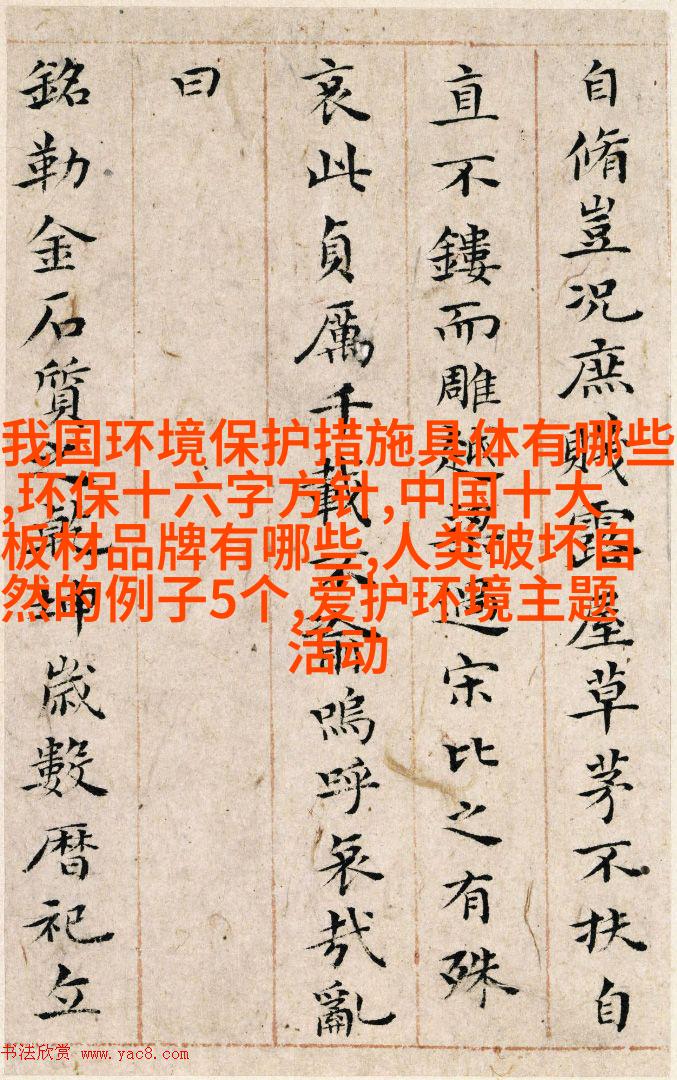 自脩豈況庶賤露屋草茅不扶自
直不鏤而雕越梁過宋比之有殊
哀此貞厲千載不渝嗚呼哀哉亂
曰
銘勒金石質之乾坤歲數曆祀立
我国环境保护措施具体有哪些
,环保十六字方针,中国十大
板材品牌有哪些,人类破坏自
然的例子5个,爱护环境主题
活动
书法欣赏 www.yac8.com